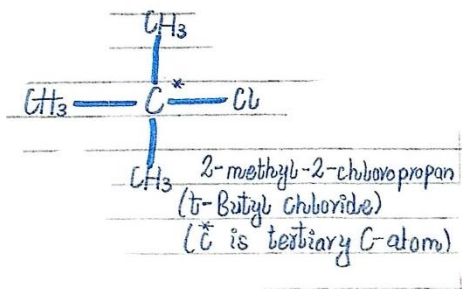 CH₃
CH₃ — C* — Cl
CH₃ 2-methyl-2-chloropropan
(t-Butyl chloride)
(C* is tertiary C-atom)